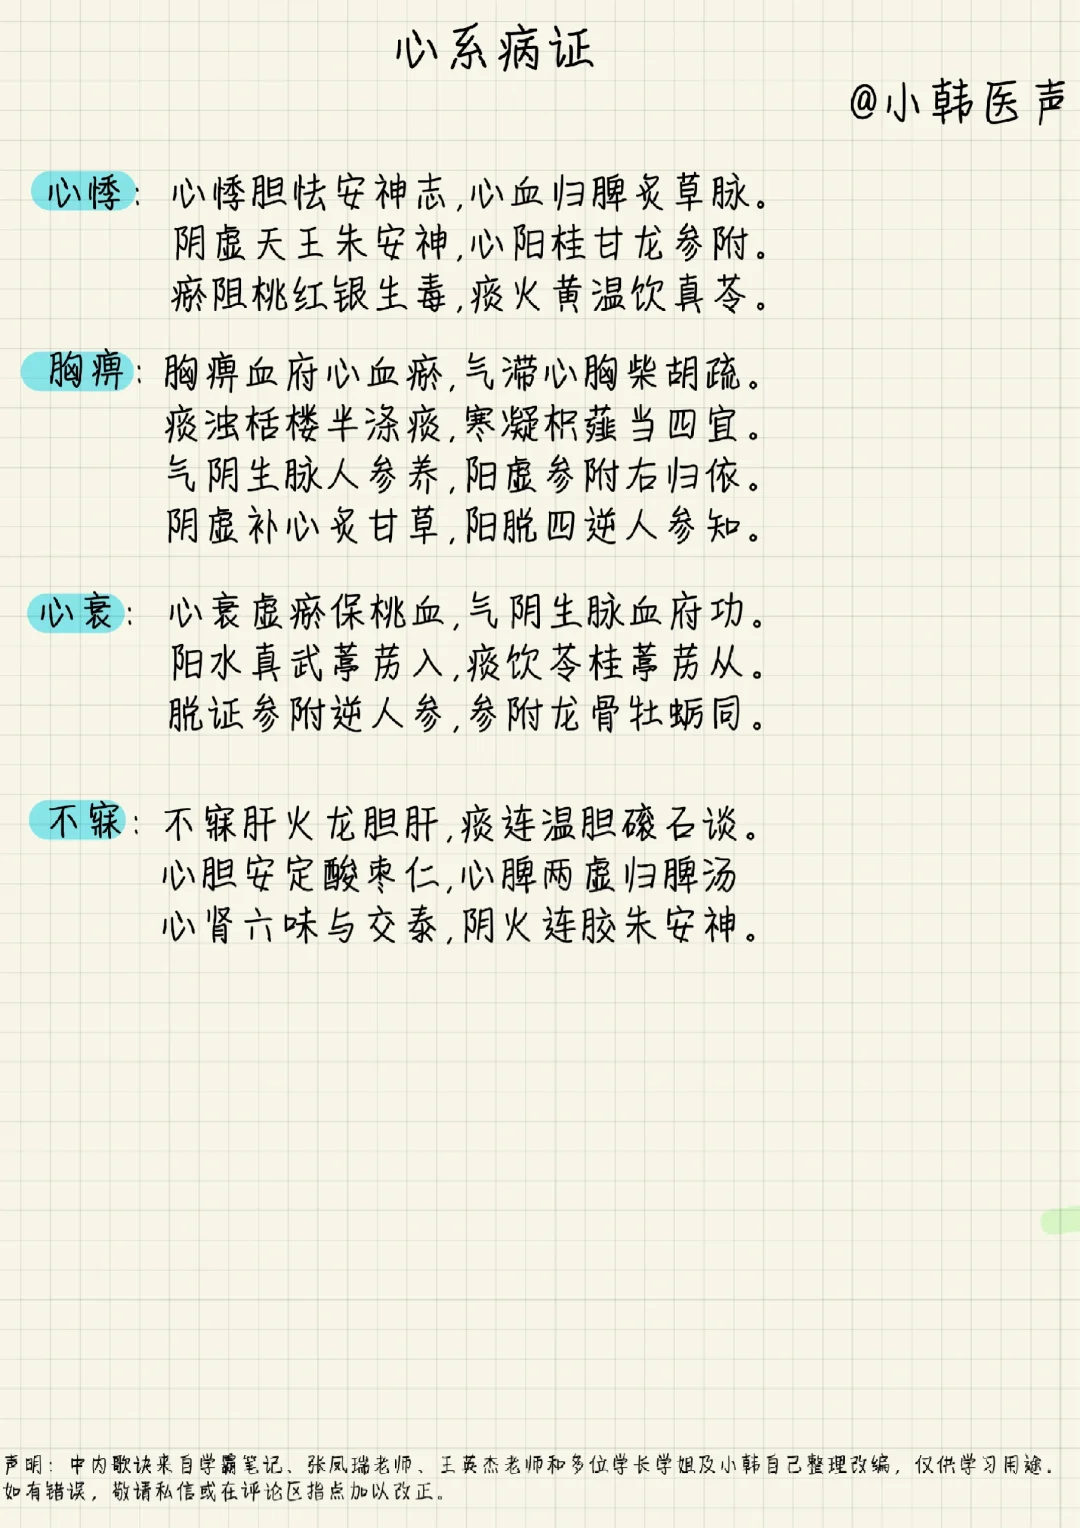 心系病证
@小韩医声
心悸：心悸胆怯安神志,心血归脾炙草脉。
阴虚天王朱安神,心阳桂甘龙参附。
瘀阻桃红银生毒,痰火黄温饮真苓。
胸痹：胸痹血府心血瘀,气滞心胸柴胡疏。
痰浊栝楼半涤痰,寒凝枳薤当四宜。
气阴生脉人参养,阳虚参附右归依。
阴虚补心炙甘草,阳脱四逆人参知。
心衰：心衰虚瘀保桃血,气阴生脉血府功。
阳水真武葶苈入,痰饮苓桂葶苈从。
脱证参附逆人参,参附龙骨牡蛎同。
不寐：不寐肝火龙胆肝,痰连温胆礞石谈。
心胆安定酸枣仁,心脾两虚归脾汤
心肾六味与交泰,阴火连胶朱安神。
声明：中内歌诀来自学霸笔记、张凤瑞老师、王英杰老师和多位学长学姐及小韩自己整理改编，仅供学习用途.
如有错误，敬请私信或在评论区指点加以改正。